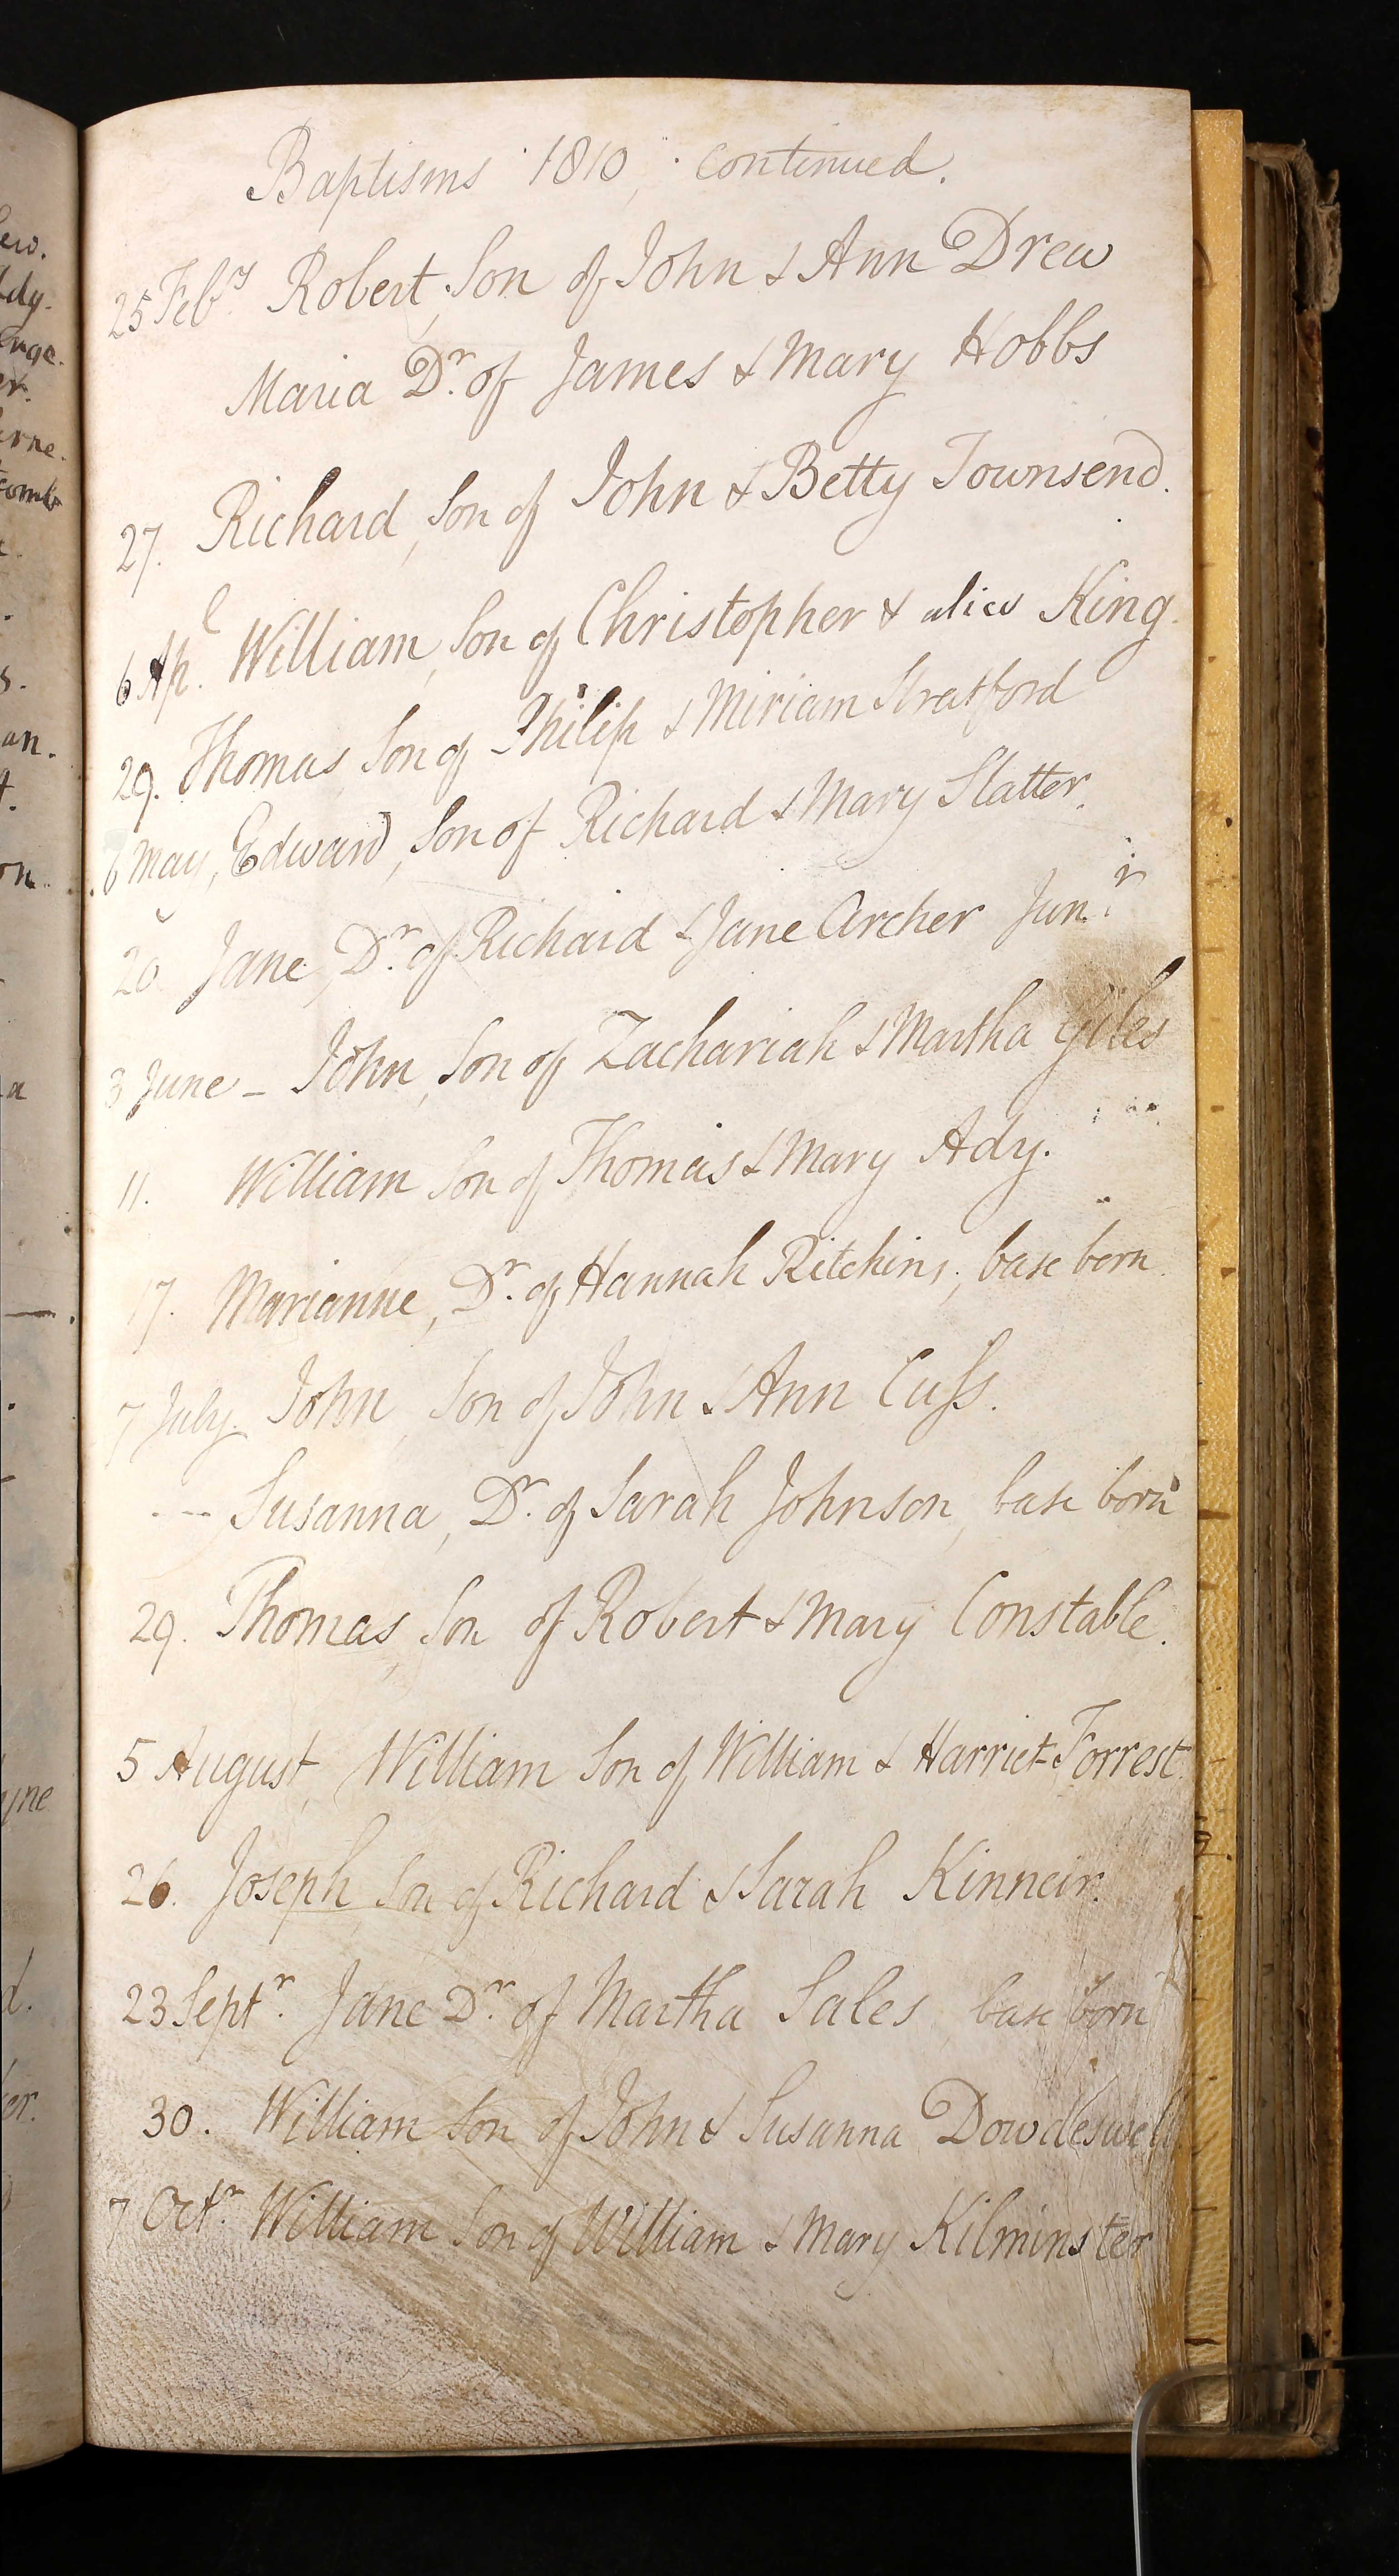 Baptisms 1810, continued.
25 Feb.ry Robert, Son of John & Ann Drew
Maria Dr. of James & Mary Hobbs
27. Richard, Son of John & Betty Townsend.
6 Ap.l William, Son of Christopher & alice King.
29. Thomas Son of Philip & Miriam Stratford
6 May, Edward, Son of Richard & Mary Slatter.
20 Jane, Dr. of Richard & Jane Archer Jun.r
3 June - John, Son of Zachariah & Martha Giles
11. William Son of Thomas & Mary Ady.
17. Marianne, Dr. of Hannah Ritchins, base born.
7 July John, Son of John & Ann Cuss.
--- Susanna, Dr. of Sarah Johnson, base born
29. Thomas, Son of Robert & Mary Constable.
5 August, William Son of William & Harriet Forrest.
26. Joseph, Son of Richard & Sarah Kinneir.
23 Septr. Jane Dr. of Martha Sales, base born
30. William Son of John & Susanna Dowdeswell
7 Octr. William Son of William & Mary Kilminster